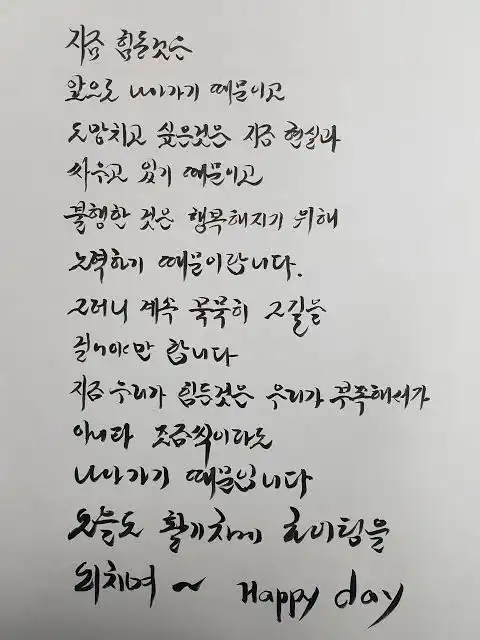 지금 힘든것은
앞으로 나아가기 때문이고
도망치고 싶은것은 지금 현실과
싸우고 있기 때문이고
불행한 것은 행복해지기 위해
노력하기 때문이랍니다.
그러니 계속 묵묵히 그길을
걸어야만 합니다
지금 우리가 힘든것은 우리가 부족해서가
아니라 조금씩이라도
나아가기 때문입니다
오늘도 활기차게 화이팅을
외치며 ~ Happy day